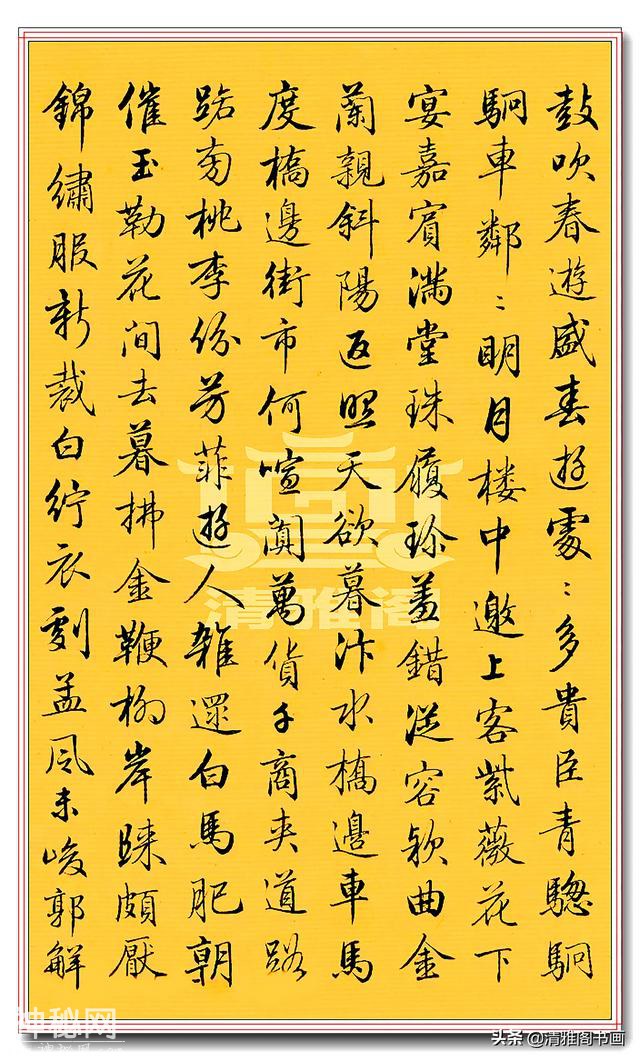 鼓吹春遊盛春遊處〻多貴臣青驄駉
駉車鄰〻明月楼中邀上客紫薇花下
宴嘉賓滿堂珠履珎羞錯從容欵曲金
蘭親斜陽返照天欲暮汴水橋邊車馬
度橋邊街市何喧闐萬貨千商夾道路
路旁桃李份芳菲遊人雜遝白馬肥朝
催玉勒花间去暮拂金鞭柳岸睐頗厭
錦繡服新裁白紵衣劇孟風未峻郭解
清雅阁
神秘网
头条@清雅阁书画